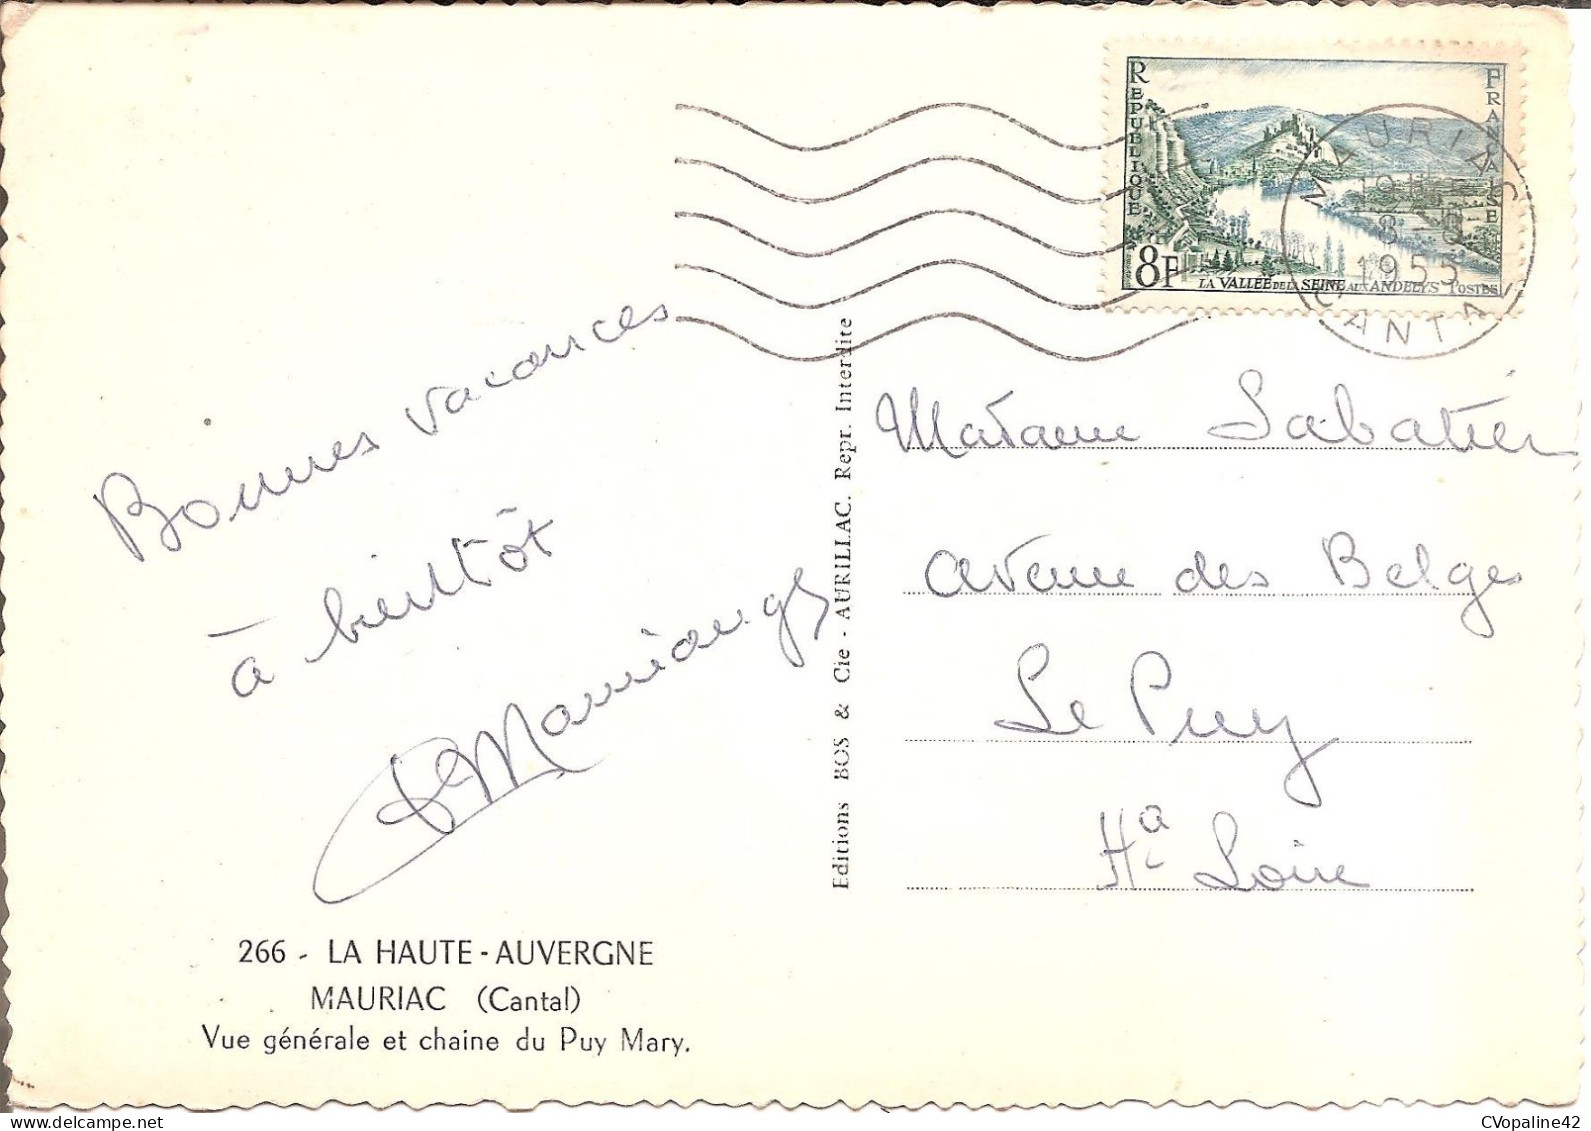 RÉPUBLIQUE
FRANÇAISE
8F
LA VALLÉE DE LA SEINE AUX ANDELYS POSTES
MAURIAC
19H
8 - 8
1955
CANTAL
Bonnes vacances
à bientôt
Madame Sabatier
avenue des Belges
Le Puy
Hte Loire
Editions BOS & Cie - AURILLAC. Repr. Interdite
266 - LA HAUTE-AUVERGNE
MAURIAC (Cantal)
Vue générale et chaine du Puy Mary.
CVopaline42